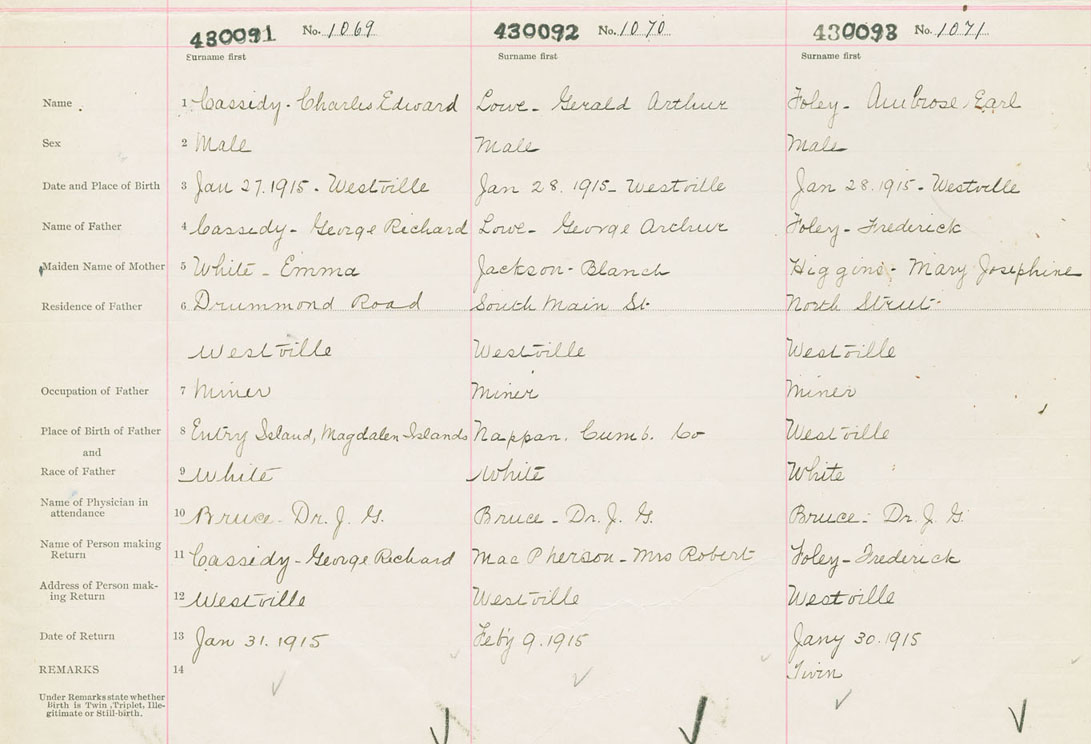 430091 No. 1069 430092 No. 1070 430093 No. 1071
Surname first Surname first Surname first
Name 1 Cassidy - Charles Edward Lowe - Gerald Arthur Foley - Ambrose Earl
Sex 2 Male Male Male
Date and Place of Birth 3 Jan 27. 1915 - Westville Jan 28. 1915 - Westville Jan 28. 1915 - Westville
Name of Father 4 Cassidy - George Richard Lowe - George Arthur Foley - Frederick
Maiden Name of Mother 5 White - Emma Jackson - Blanch Higgins - Mary Josephine
Residence of Father 6 Drummond Road South Main St. North Street
Westville Westville Westville
Occupation of Father 7 Miner Miner Miner
Place of Birth of Father 8 Entry Island, Magdalen Islands Nappan. Cumb. Co Westville
and
Race of Father 9 White White White
Name of Physician in
attendance 10 Bruce - Dr. J. G. Bruce - Dr. J. G. Bruce - Dr. J. G.
Name of Person making
Return 11 Cassidy - George Richard Mac Pherson - Mrs Robert Foley - Frederick
Address of Person mak-
ing Return 12 Westville Westville Westville
Date of Return 13 Jan 31. 1915 Feb'y 9. 1915 Jany 30. 1915
REMARKS 14 Twin
Under Remarks state whether
Birth is Twin, Triplet, Ille-
gitimate or Still-birth.